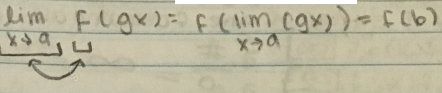 lim x→a f(gx) = f(lim x→a (gx)) = f(b)